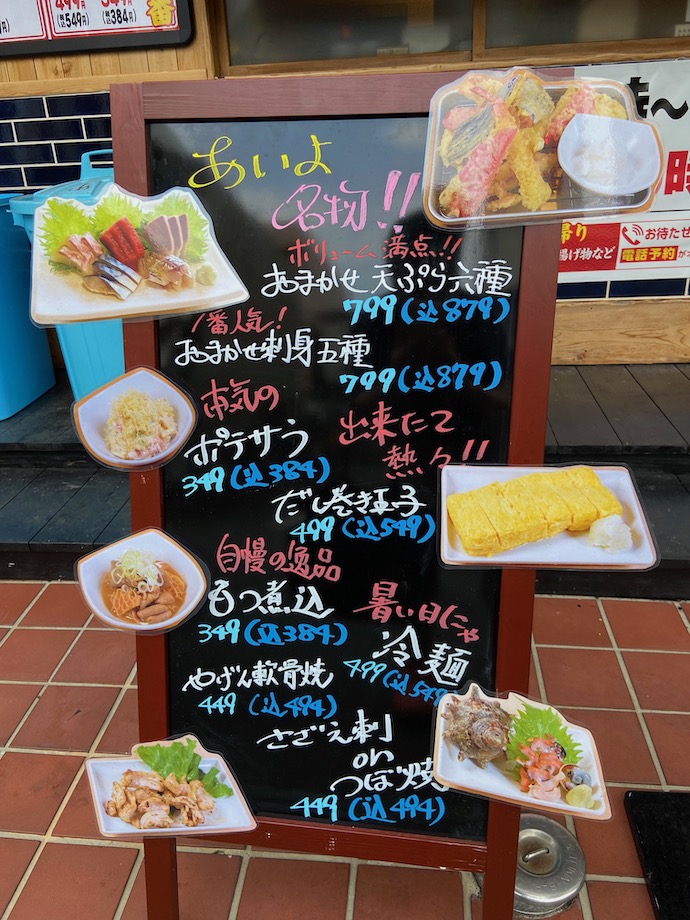 (税込549円)
(税込384円)
番
あいよ
名物!!
ボリューム満点!!
おまかせ天ぷら六種
799(込879)
1番人気!
おまかせ刺身五種
799(込879)
本気の
ポテサラ
349(込384)
出来たて
熱々!!
だし巻き玉子
499(込549)
自慢の逸品
もつ煮込
349(込384)
暑い日にゃ
冷麺
499(込549)
やげん軟骨焼
449(込494)
さざえ刺
or
つぼ焼
449(込494)
時
お待たせ
揚げ物など
電話予約が